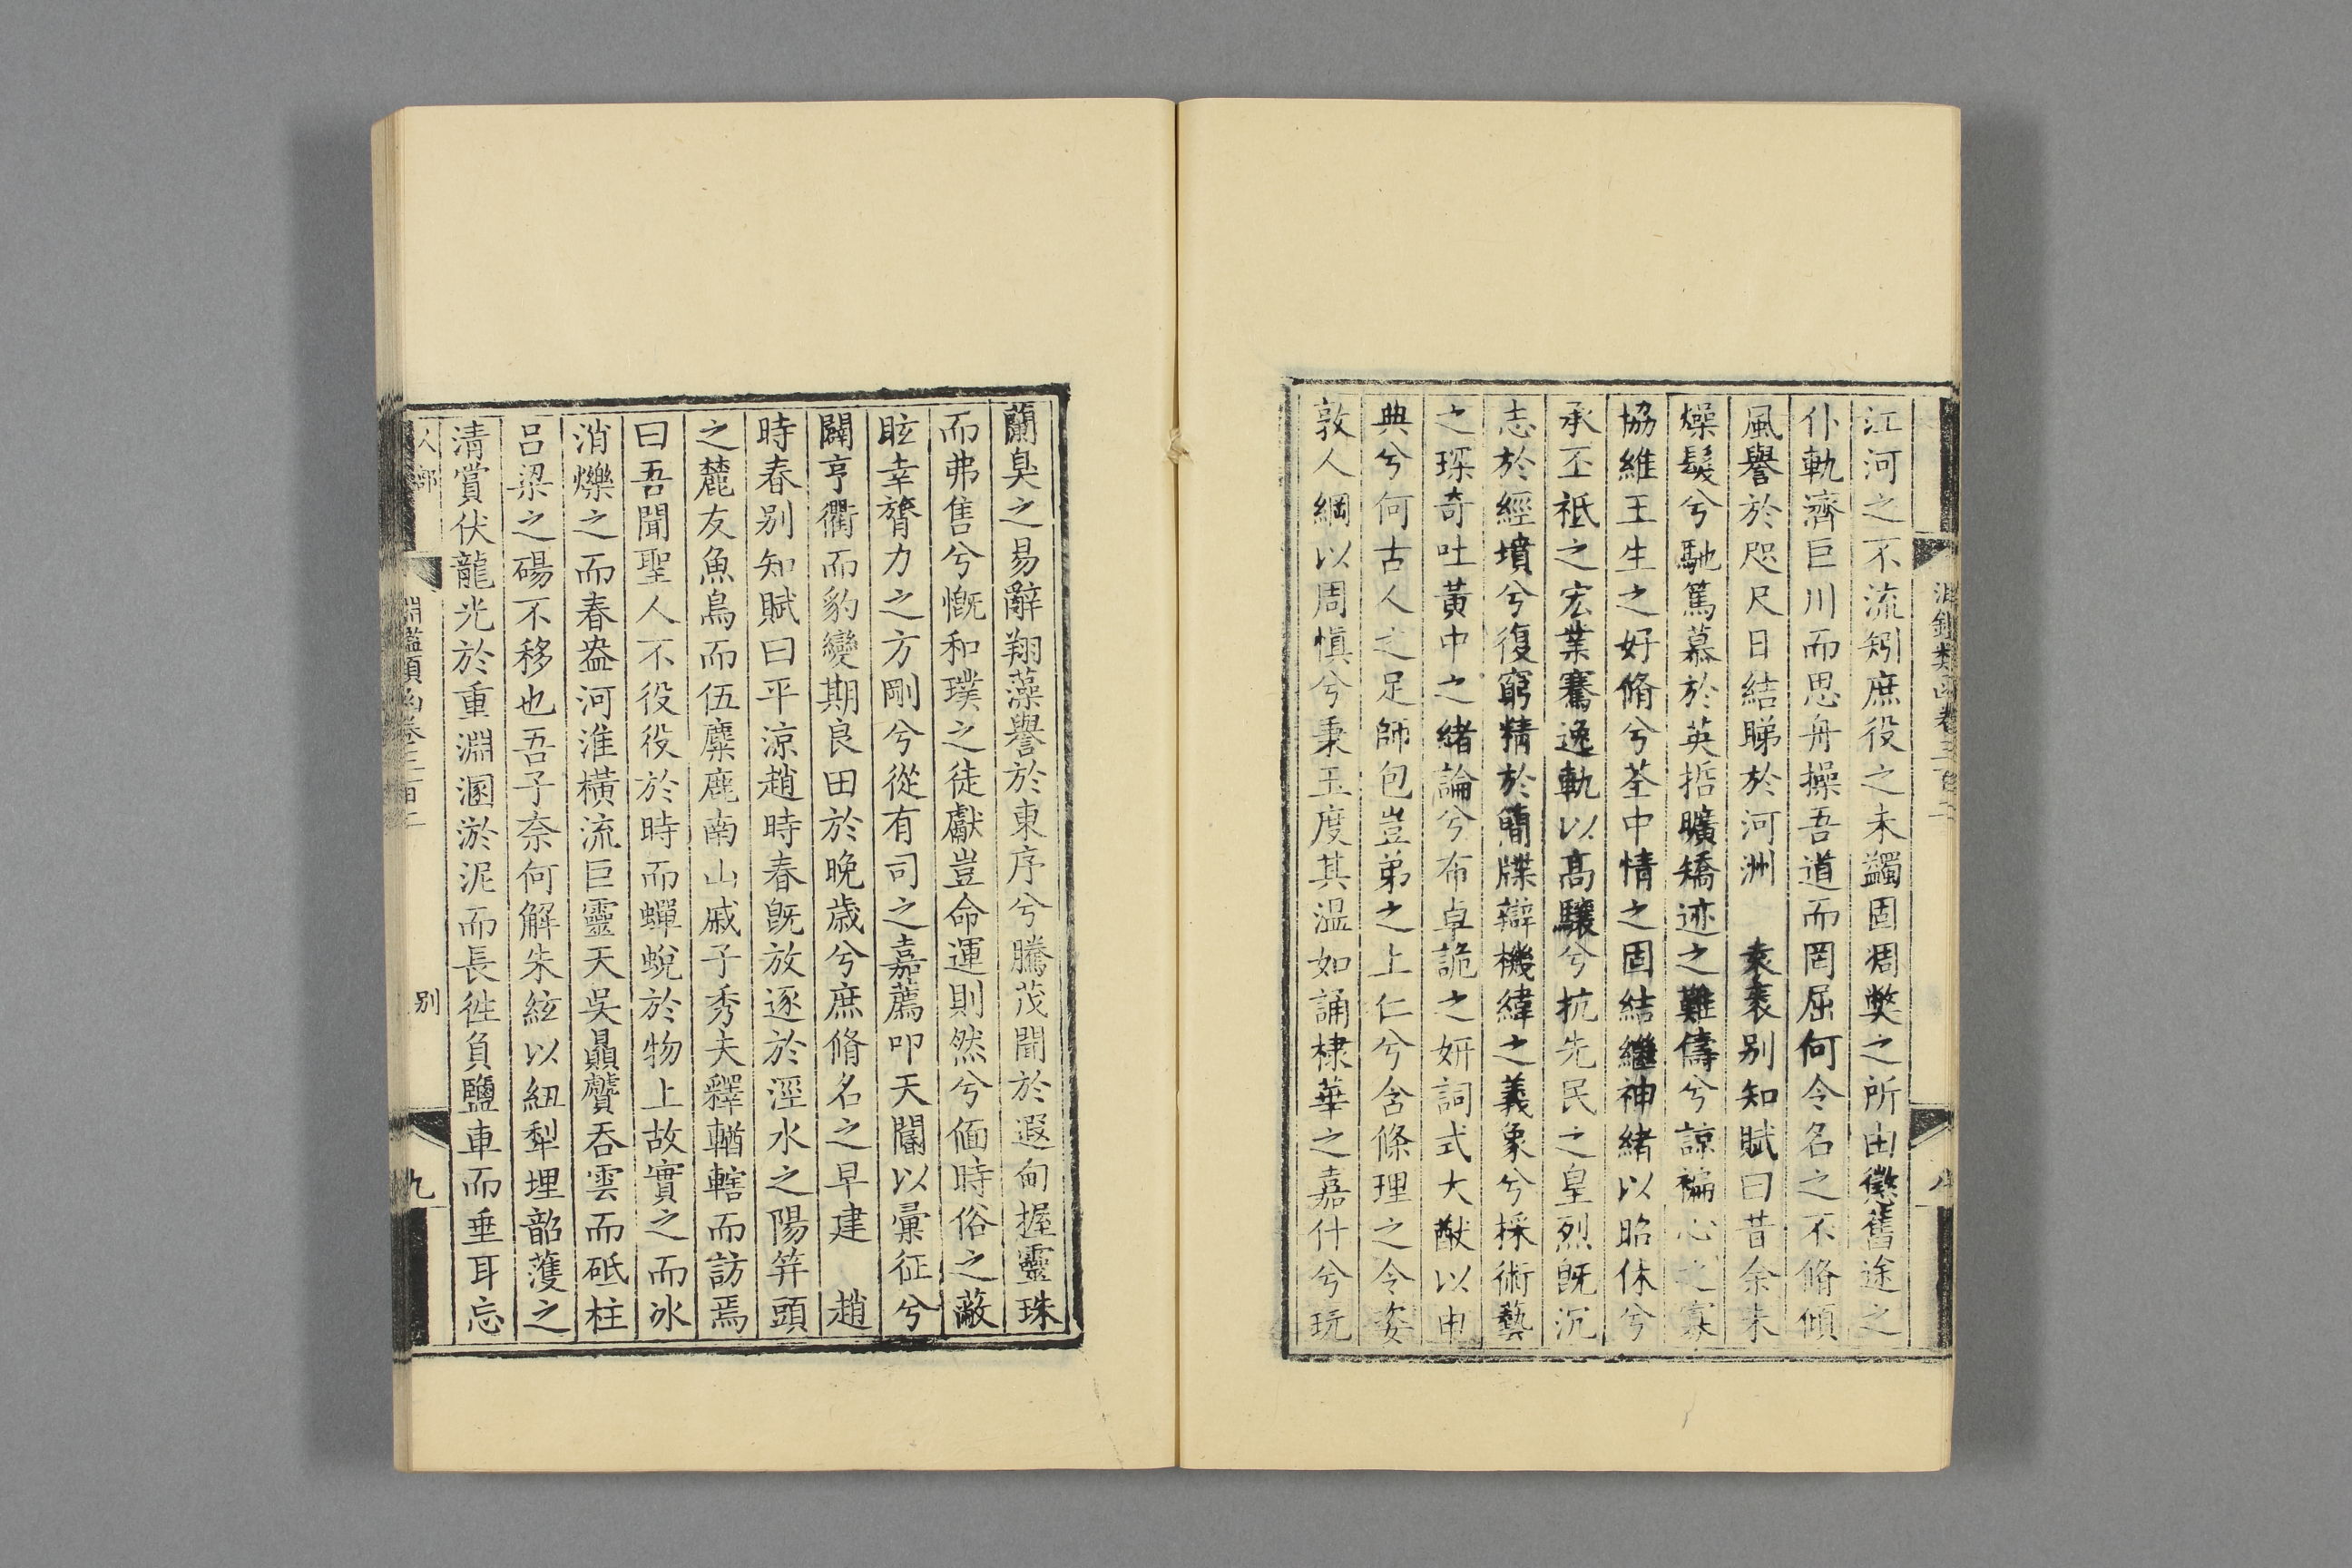 江河之不流矧庶役之未蠲固凋獘之所由懲舊途之
仆軌濟巨川而思舟操吾道而罔屈何令名之不脩傾
風譽於咫尺日結睇於河洲　袁袠别知賦曰昔余未
燥髮兮馳篤慕於英哲曠矯迹之難儔兮諒褊心之寡
協維王生之好脩兮荃中情之固結繼神緒以昭休兮
承丕祗之宏業騫逸軌以高驤兮抗先民之皇烈旣沉
志於經墳兮復窮精於簡牒辯機緯之義象兮採術藝
之琛奇吐黃中之緒論兮布卓詭之妍詞式大猷以申
典兮何古人之足師包豈弟之上仁兮含條理之令姿
敦人綱以周愼兮秉玉度其溫如誦棣華之嘉什兮玩
蘭臭之易辭翔藻譽於東序兮騰茂聞於遐甸握靈珠
而弗售兮慨和璞之徒獻豈命運則然兮偭時俗之蔽
眩幸膂力之方剛兮從有司之嘉薦叩天閽以彙征兮
闢亨衢而豹變期良田於晚歲兮庶脩名之早建　趙
時春别知賦曰平涼趙時春旣放逐於涇水之陽筓頭
之麓友魚鳥而伍麋鹿南山戚子秀夫釋輶轄而訪焉
曰吾聞聖人不役役於時而蟬蛻於物上故實之而冰
消爍之而春盎河淮橫流巨靈天吳贔贑吞雲而砥柱
呂梁之碭不移也吾子奈何解朱絃以紐犁埋韶濩之
清賞伏龍光於重淵溷淤泥而長徃負鹽車而垂耳忘
人部
淵鑑類函卷三百二
别
九